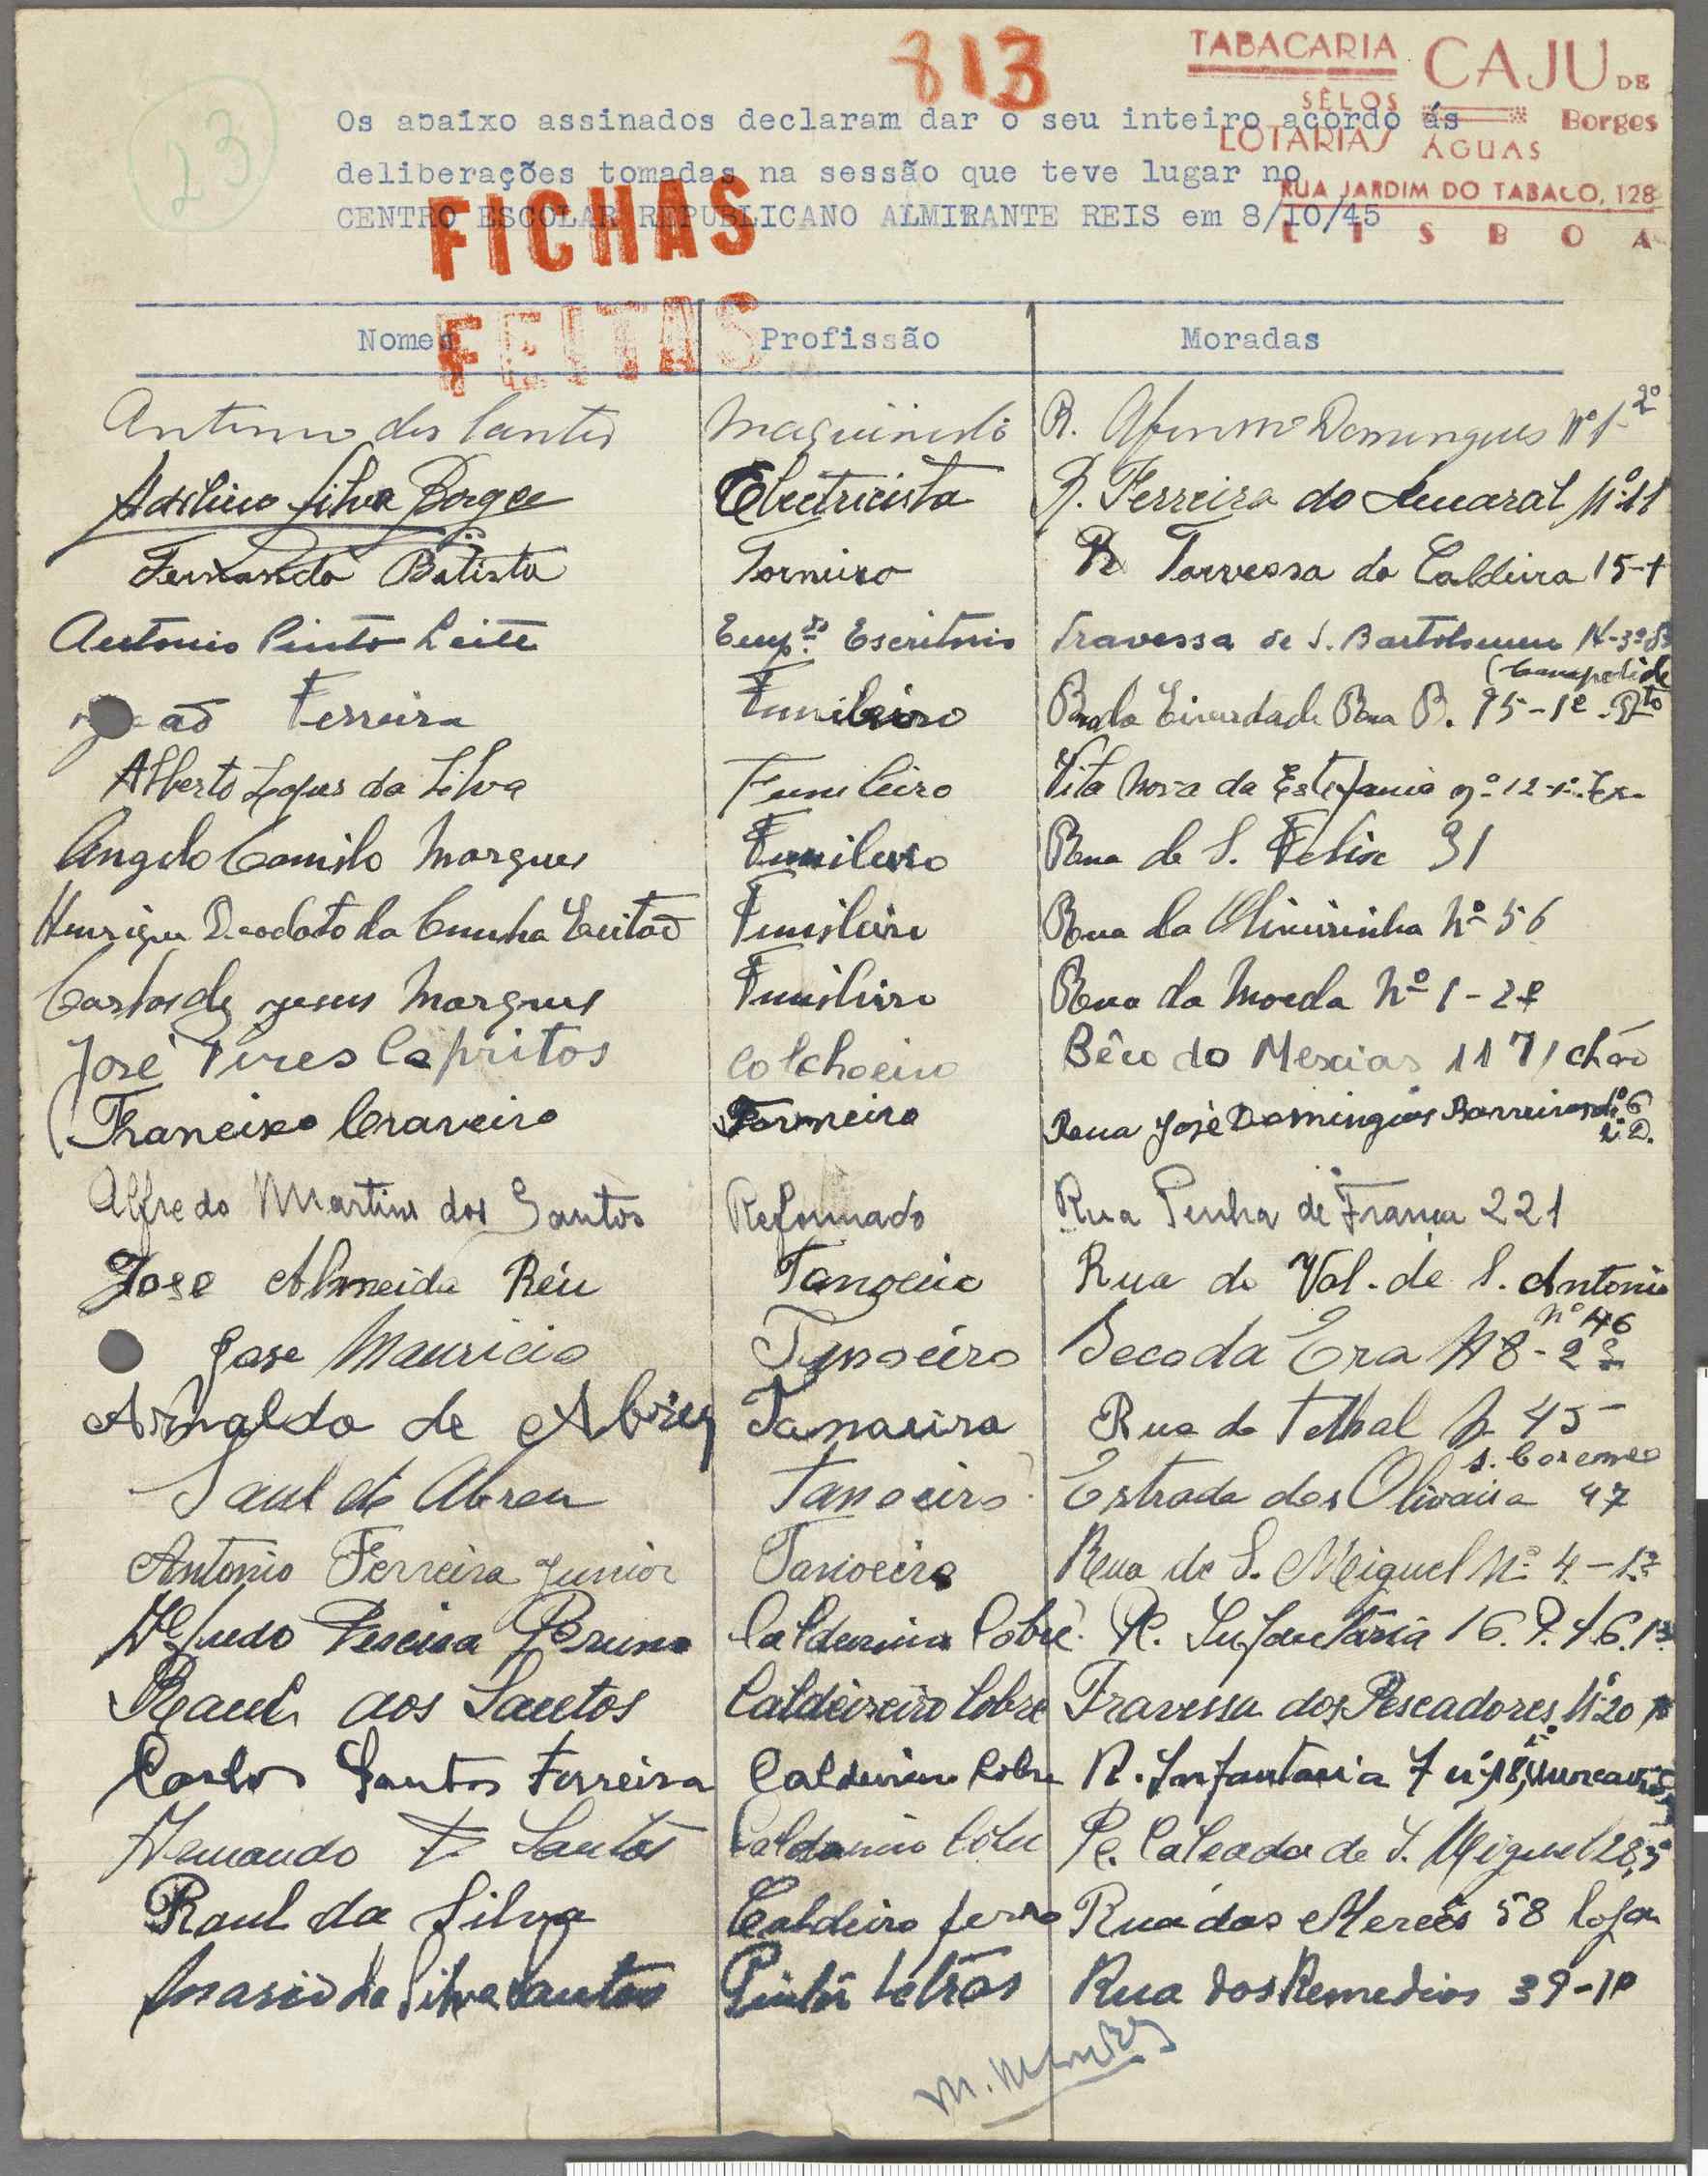 813
23
TABACARIA CAJU DE
SÊLOS Borges
LOTARIAS ÁGUAS
RUA JARDIM DO TABACO, 128
LISBOA
Os abaixo assinados declaram dar o seu inteiro acordo ás
deliberações tomadas na sessão que teve lugar no
CENTRO ESCOLAR REPUBLICANO ALMIRANTE REIS em 8/10/45
FICHAS
FEITAS
Nomes Profissão Moradas
Antonio dos Santos Maquinista R. Afonso Domingues nº 1-2º
Adelino Silva Borges Electricista R. Ferreira do Amaral Nº 11
Fernando Batista Torneiro R Tarvessa do Caldeira 15-1
Antonio Pinto Leite Empdo Escritorio Travessa de S. Bartolomeu 14-3º
João Ferreira Funileiro Rua B. 75-1º
(Campolide
Alberto Lopes da Silva Funileiro Vila Nova da Estefania nº 12-1º
Angelo Camilo Marques Funileiro Rua de S. Felix 31
Henrique Deodato da Cunha Leitão Funileiro Rua da Oliveirinha Nº 56
Carlos de Jesus Marques Funileiro Rua da Moeda Nº 1-2º
José Pires Capritos Colchoeiro Bêco do Mexias 11 chão
Francisco Craveiro Torneiro Rua José Domingos Barreiros nº 6
Alfredo Martins dos Santos Reformado Rua Penha de França 221
Jose Almeida Réu Tanoeiro Rua do Val. de S. Antonio
nº 46
Jose Mauricio Tanoeiro Beco da Era Nº 8-2º
Arnaldo de Abreu Tanoeiro Rua do Telhal Nº 45
Saul de Abreu Tanoeiro Estrada dos Olivais 47
Antonio Ferreira Junior Tanoeiro Rua de S. Miguel Nº 4-1º
Alfredo Pereira Bruno Caldereiro Cobre R. Infantaria 16.
Raul dos Santos Caldeireiro Cobre Travessa dos Pescadores Nº 20
Carlos Santos Ferreira Caldeireiro Cobre R. Infantaria 7 nº 18,
Fernando Santos Caldereiro Cobre R. Calçada de S. Miguel 28,3º
Raul da Silva Caldeiro ferro Rua das Mercês 58 loja
Mario da Silva Santos Pintôr Letras Rua dos Remedios 39-1º
M. Mendes